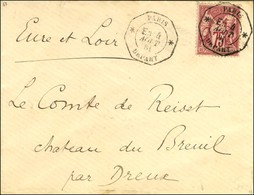 PARIS
DEPART
PARIS
DEPART
Eure et Loir
Le Comte de Reiset
chateau du Breuil
par Dreux